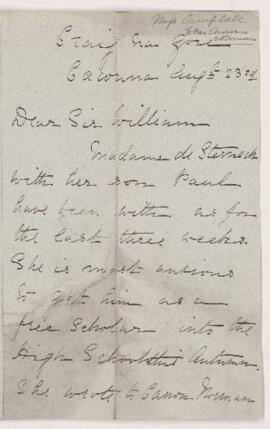 Miss Campbell
Craig na Gour
Cacouna Augt 23rd
Dear Sir William
Madame de Sterneck
with her son Paul
have been with us for
the last three weeks
She is most anxious
to get him as a
free Scholar into the
High School this Autumn.
She wrote to Canon Norman